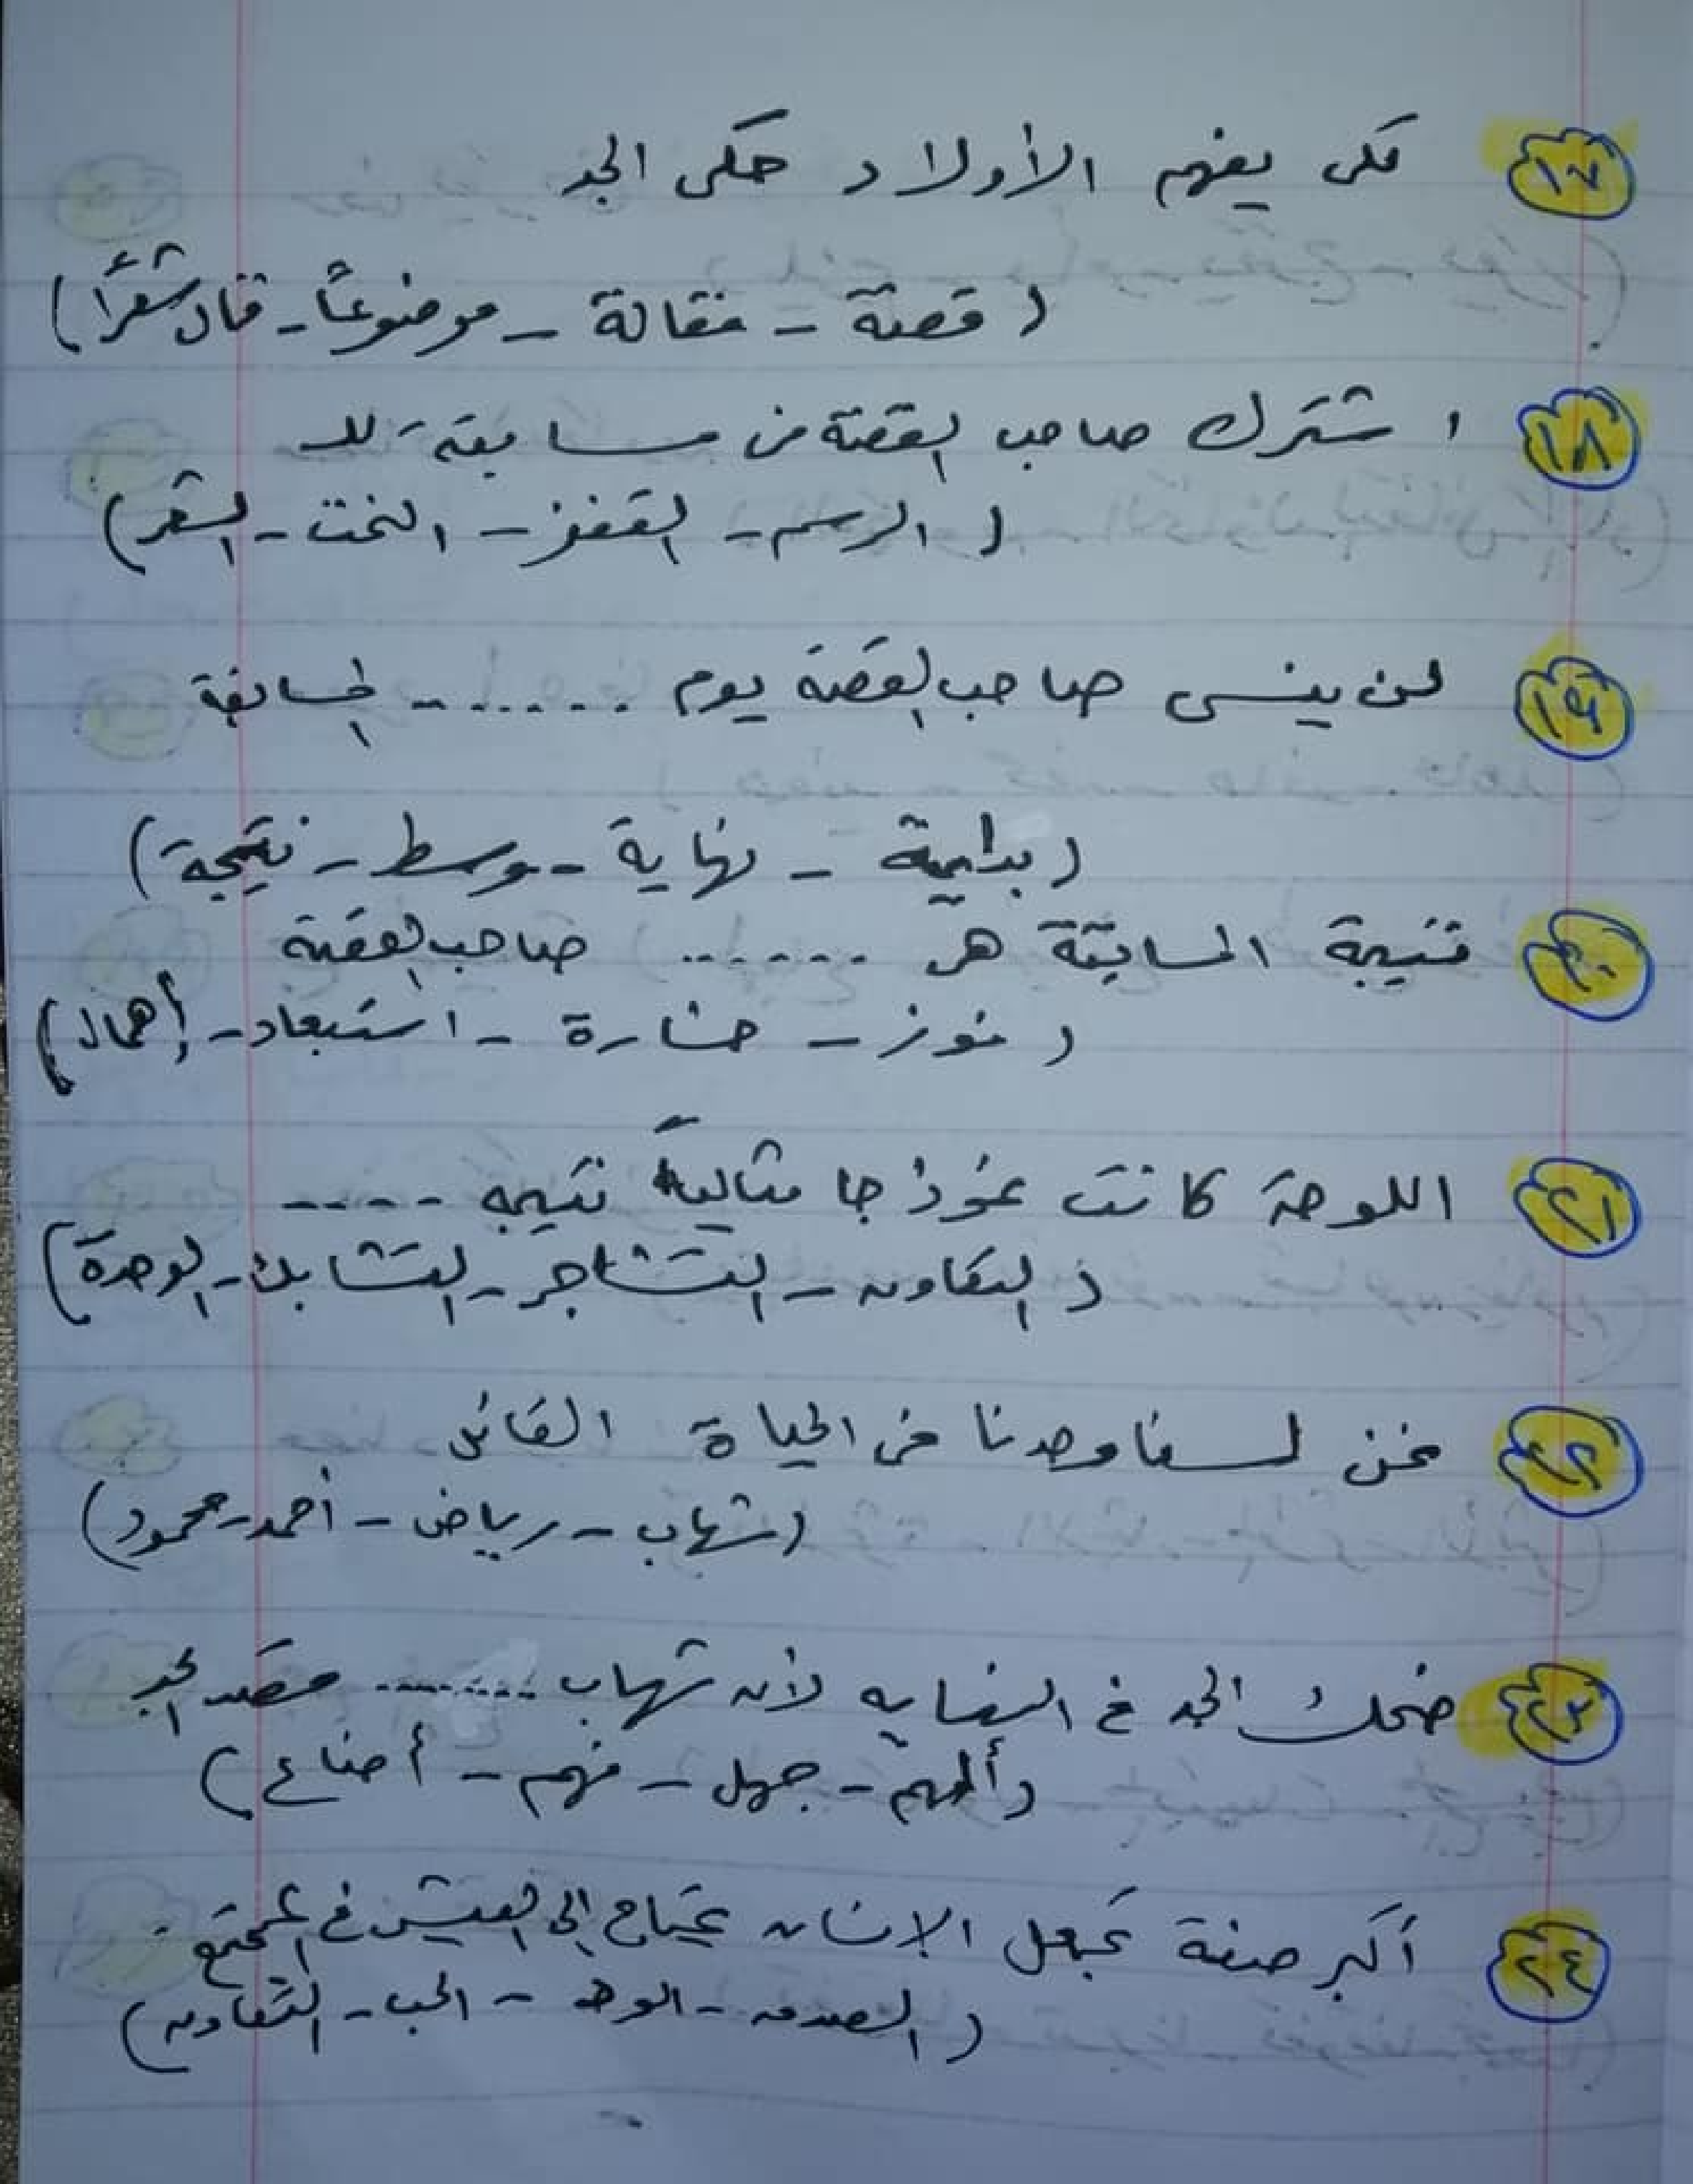 ١٧ لكى يفهم الأولاد حكى الجد
( قصة - مقالة - موضوعًا - قال شعرًا )
١٨ اشترك صاحب القصة فى مسابقة لـ
( الرسم - القفز - النحت - الشعر )
١٩ لن ينسى صاحب القصة يوم ....... المسابقة
( بداية - نهاية - وسط - نتيجة )
٢٠ نتيجة المسابقة هى ...... صاحب القصة
( فوز - خسارة - استبعاد - إهمال )
٢١ اللوحة كانت نموذجا مثاليةً نتيجه ----
( التعاون - التشاجر - التشابك - الوحدة )
٢٢ نحن لسنا وحدنا فى الحياة القائل
( شهاب - رياض - أحمد - محمود )
٢٣ ضحك الجد في النهايه لأن شهاب ........ قصد الجد
( ألهم - جهل - فهم - أضاع )
٢٤ أكبر صفة تجعل الإنسان يحتاج إلى العيش في المجتمع
( الصدق - الود - الحب - التعاون )